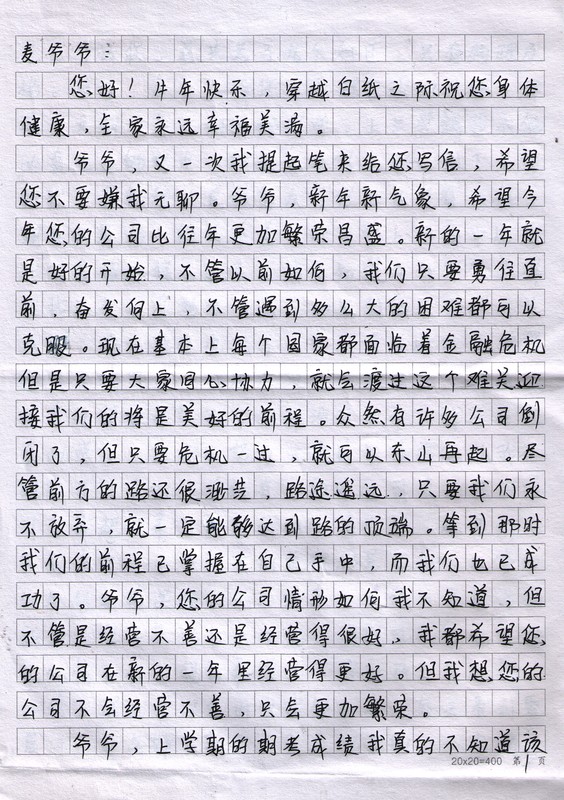 麦爷爷：
您好！牛年快乐，穿越白纸之际祝您身体
健康，全家永远幸福美满。
爷爷，又一次我提起笔来给您写信，希望
您不要嫌我无聊。爷爷，新年新气象，希望今
年您的公司比往年更加繁荣昌盛。新的一年就
是好的开始，不管以前如何，我们只要勇往直
前，奋发向上，不管遇到多么大的困难都可以
克服。现在基本上每个国家都面临着金融危机
但是只要大家同心协力，就会渡过这个难关迎
接我们的将是美好的前程。众然有许多公司倒
闭了，但只要危机一过，就可以东山再起。尽
管前方的路还很渺茫，路途遥远，只要我们永
不放弃，就一定能够达到路的顶端。等到那时
我们的前程已掌握在自己手中，而我们也已成
功了。爷爷，您的公司情形如何我不知道，但
不管是经营不善还是经营得很好，我都希望您
的公司在新的一年里经营得更好。但我想您的
公司不会经营不善，只会更加繁荣。
爷爷，上学期的期考成绩我真的不知道该
20x20=400 第1页